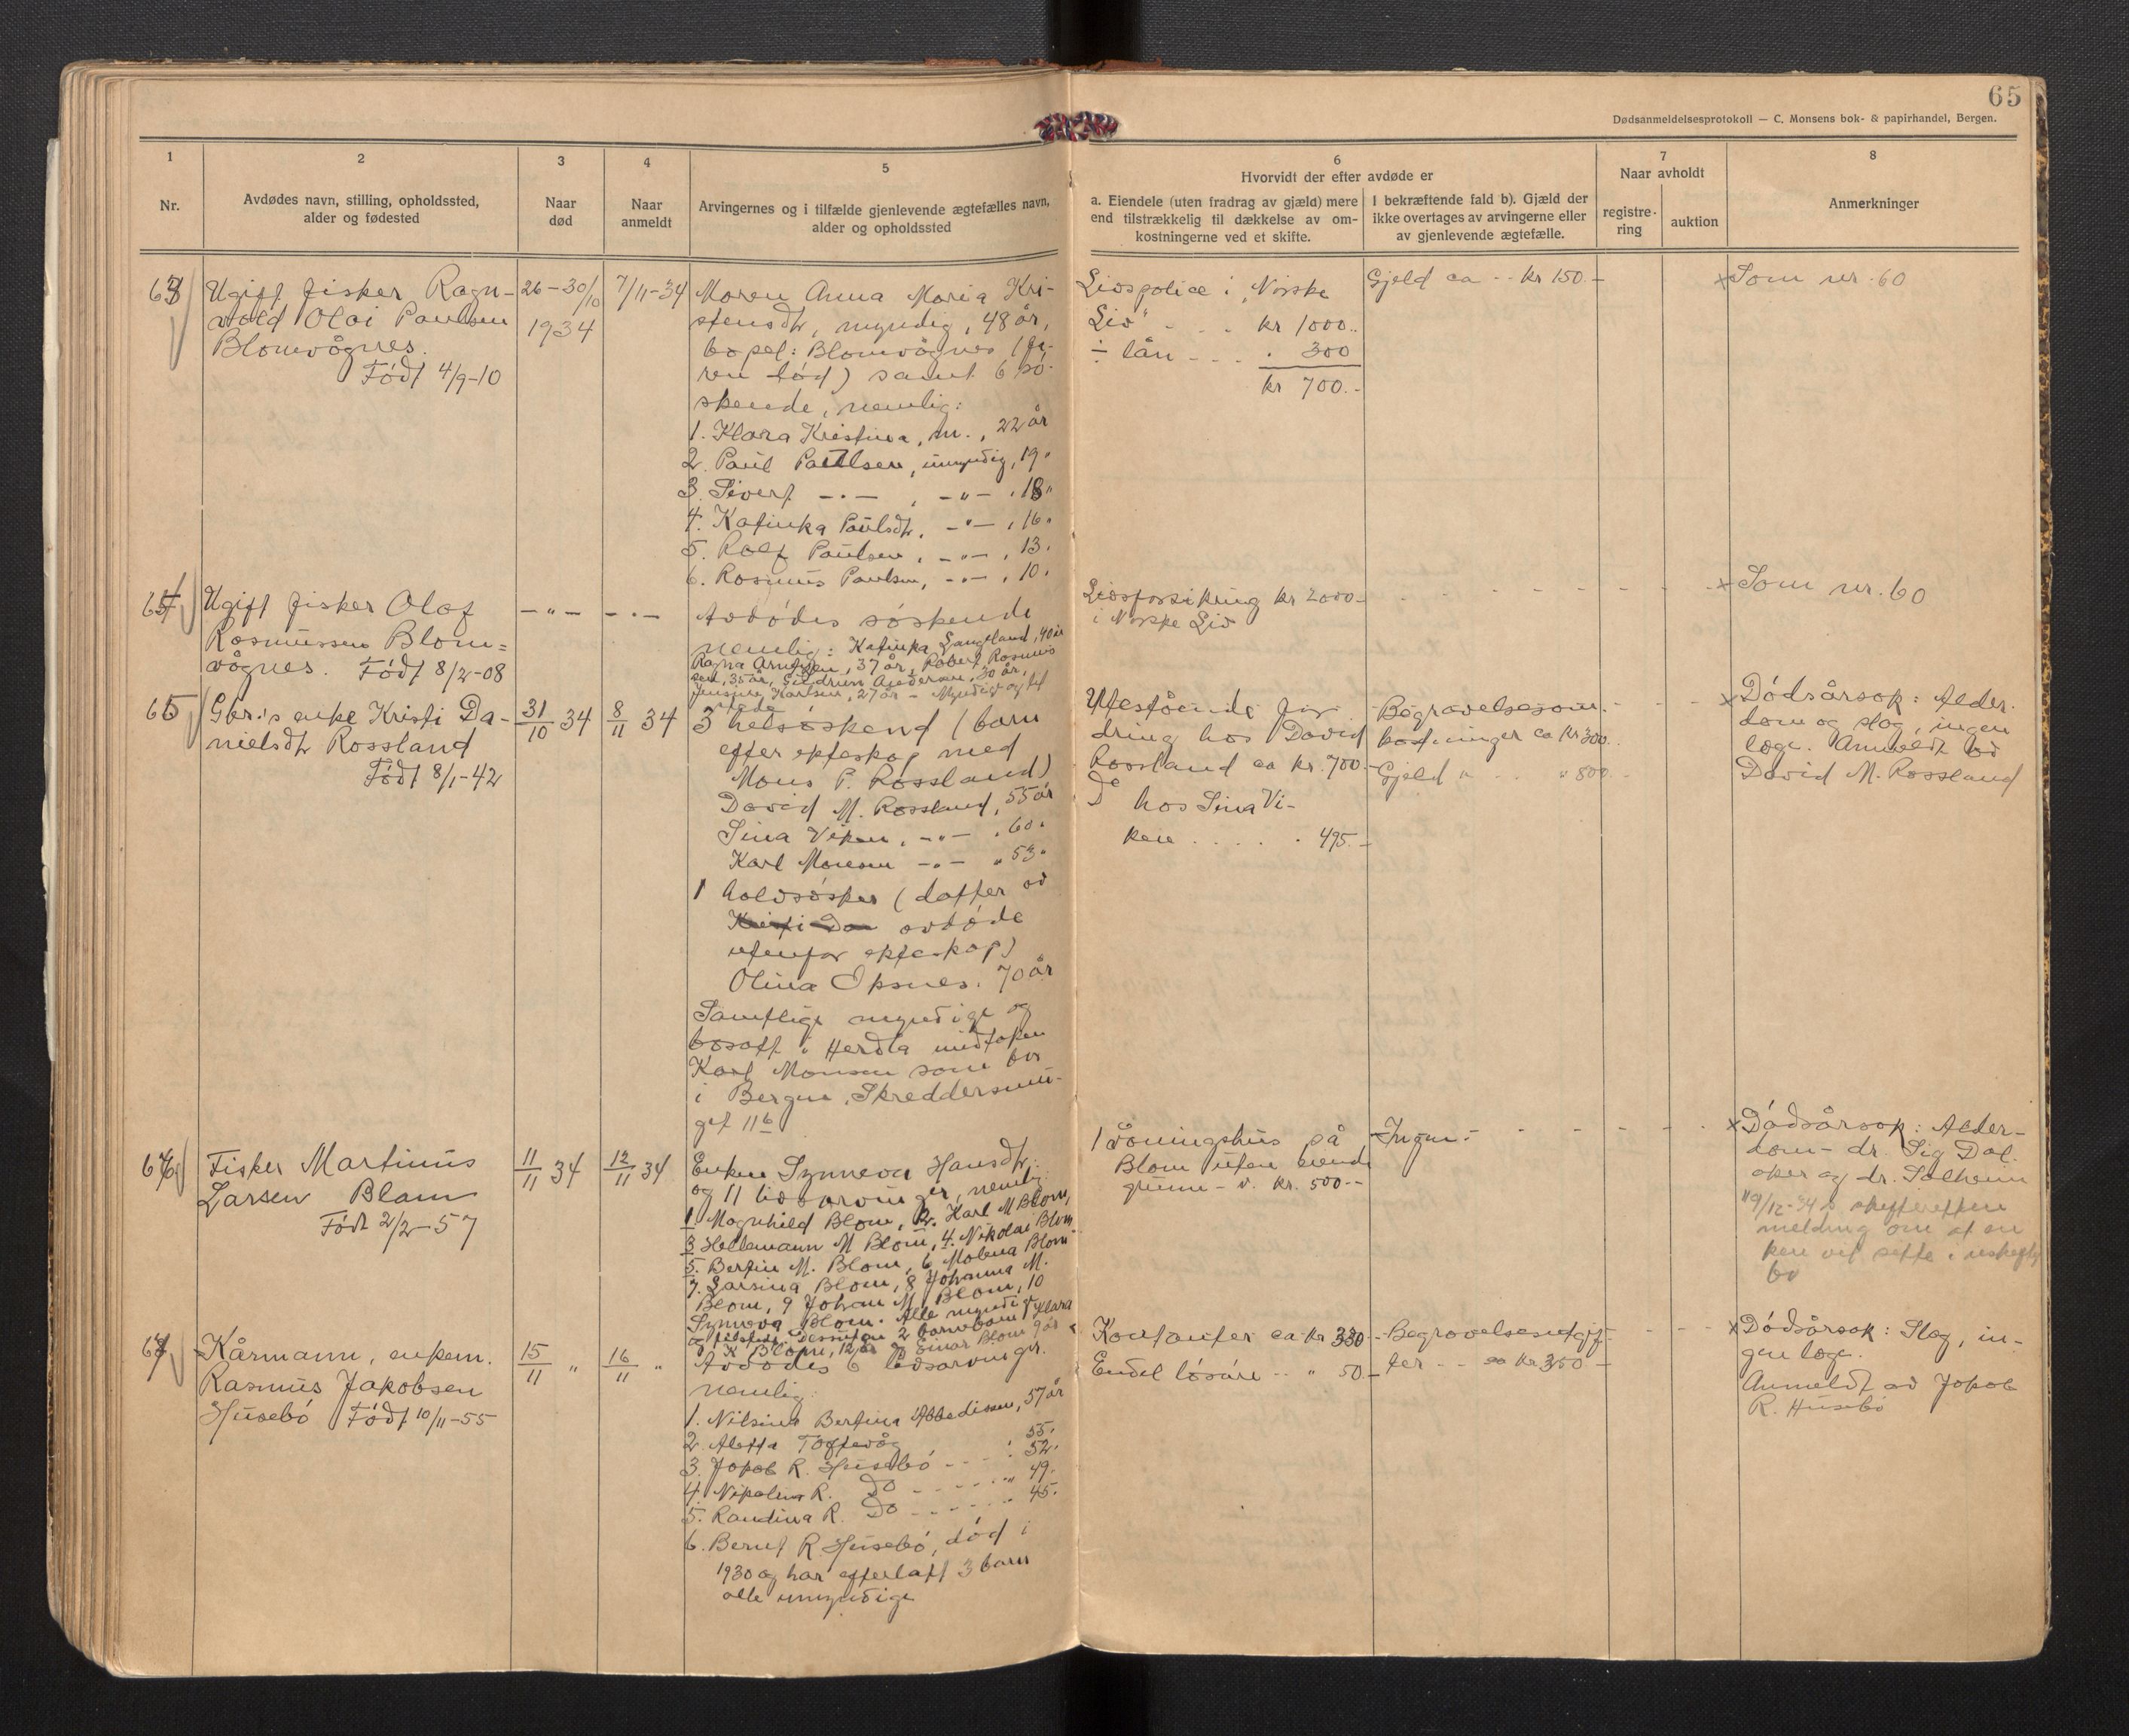 65
Dødsanmeldelsesprotokoll — C. Monsens bok- & papirhandel, Bergen.
1
Nr.
2
Avdødes navn, stilling, opholdssted,
alder og fødested
3
Naar
død
4
Naar
anmeldt
5
Arvingernes og i tilfælde gjenlevende ægtefælles navn,
alder og opholdssted
6
Hvorvidt der efter avdøde er
a. Eiendele (uten fradrag av gjæld) mere
end tilstrækkelig til dækkelse av om-
kostningerne ved et skifte.
I bekræftende fald b). Gjæld der
ikke overtages av arvingerne eller
av gjenlevende ægtefælle.
7
Naar avholdt
registre-
ring
auktion
8
Anmerkninger
63
Ugift fisker Ragn-
vald Olai Paulsen
Blomvågnes.
Født 4/9-10
26-30/10
1934
7/11-34
Moren Anna Maria Kri-
stensdtr, myndig, 48 år,
bopel: Blomvågnes (fa-
ren død) samt 6 sø-
skende, nemlig:
1. Klara Kristina, m., 22 år
2. Paul Paulsen, umyndig, 19 "
3. Sivert -"- , -"- , 18 "
4. Katinka Paulsdtr, -"- , 16 "
5. Rolf Paulsen, -"- , 13 "
6. Rasmus Paulsen, -"- , 10 "
Livspolice i "Norske
Liv" - - - kr 1000.-
÷ lån - - - . 300
kr 700.-
Gjeld ca - - kr 150.-
x Som nr. 60
64
Ugift fisker Olaf
Rasmussen Blom=
vågnes. Født 8/2-08
-"-
-"-
Avdødes søskende
nemlig: Katinka Langeland, 40 år
Ragna Arntzen, 37 år, Robert Rasmus
sen, 35 år, Gudrun Andersen, 30 år,
Karlsen, 27 år - Myndige og til
stede
Livsforsikring kr 2000.-
i Norske Liv
x Som nr. 60
65
Gbr.'s enke Kristi Da-
nielsdtr Rossland
Født 8/1-42
31/10 34
8/11 34
3 helsøskend (barn
efter ekteskap med
Mons P. Rossland)
David M. Rossland, 55 år
Sina Viken, -"- , 60 "
Karl Monsen -"- " 53 "
1 halvsøsken (datter av
Kristi Da avdøde
utenfor ekteskap)
Olina Epsnes, 70 år
Samtlige myndige og
bosatt i Herdla undtaken
Karl Monsen som bor
i Bergen, Skreddersmu-
get 11 b
Utestående for-
dring hos David
Rossland ca kr. 700.-
Do hos Sina Vi-
ken . . . . . 495.-
Begravelsesom-
kostninger ca kr 300.
Gjeld " - - " 800.-
x Dødsårsak: Alder-
dom og slag, ingen
læge. Anmeldt av
David M. Rossland
66
Fisker Martinus
Larsen Blom
Født 2/2-57
11/11 34
12/11 34
Enken Synneva Hansdtr.
og 11 livsarvinger, nemlig:
1. Magnhild Blom, 2. Karl M Blom,
3 Hellemann M Blom, 4. Nikolai Blom
5. Bertin M. Blom, 6 Malena Blom
7. Larsina Blom, 8 Johanna M.
Blom, 9 Johan M. Blom, 10
Synneva Blom. Alle myndige
og tilstede. Dessuten 2 barnebarn Klara
K Blom, 12 år og Einar Blom 9 år
1 våningshus på
Blom uten eiende
grunn - v. kr. 500.-
- Ingen -
x Dødsårsak: Alder-
dom - dr. Sig Dal-
aker og dr. Solheim
19/12-34 skifteretten
melding om at en
ken vil sitte i uskiftet
bo
67
Kårmann, enkem.
Rasmus Jakobsen
Husebø Født 10/11-55
15/11 "
16/11 "
Avdødes 6 livsarvinger.
nemlig:
1. Nilsina Bertina Abbedissen, 57 år
2. Aletta Toftevåg 55.
3. Jakob R. Husebø - - - . 52.
4. Nikolina R. Do - - - - - " 49.
5. Randina R. Do - - - - - . 45.
6. Bernt R. Husebø, død i
1930 og har efterlatt 3 barn
alle umyndige
Kontanter ca kr 330.-
Endel løsøre - - " 50.-
Begravelsesutgif-
ter - - ca kr 350 -
x Dødsårsak: Slag, in-
gen læge.
Anmeldt av Jakob
R. Husebø